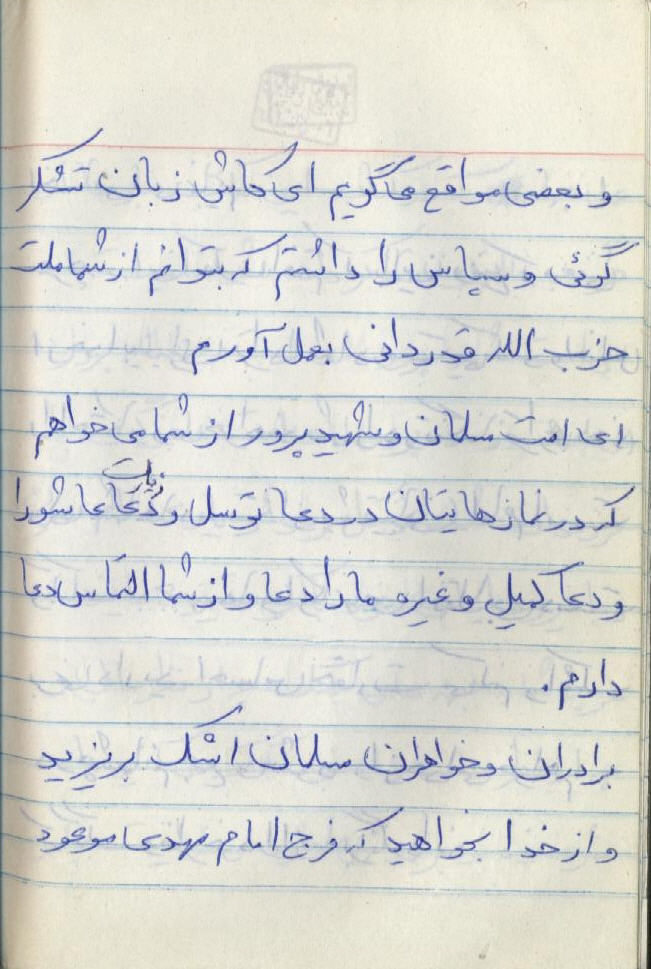 و بعضی مواقع می‌گویم ای کاش زبان تشکر
گوئی و سپاس را داشتم که بتوانم از شما ملت
حزب الله قدردانی بعمل آورم
ای امت مسلمان و شهید پرور از شما می خواهم
که در نمازهایتان در دعا توسل و دعا زیارت عاشورا
و دعا کمیل و غیره ما را دعا و از شما التماس دعا
دارم.
برادران و خواهران مسلمان اشک بریزید
و از خدا بخواهید که فرج امام مهدی موعود